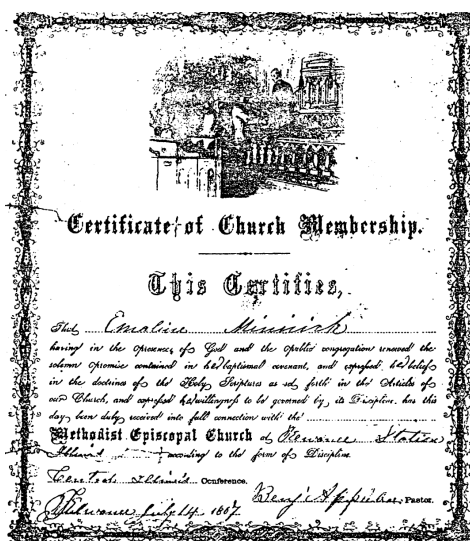 Certificate of Church Membership.
This Certifies,
That Emaline Minnich
having in the presence of God and the public congregation renewed the
solemn promise contained in her baptismal covenant, and expressed her belief
in the doctrines of the Holy Scriptures as set forth in the Articles of
our Church, and expressed her willingness to be governed by its Discipline, has this
day been duly received into full connection with the
Methodist Episcopal Church at Kewanee Station
Illinois according to the form of Discipline.
Central Illinois Conference.
Benj. Pastor.
Kewanee July 14 1867